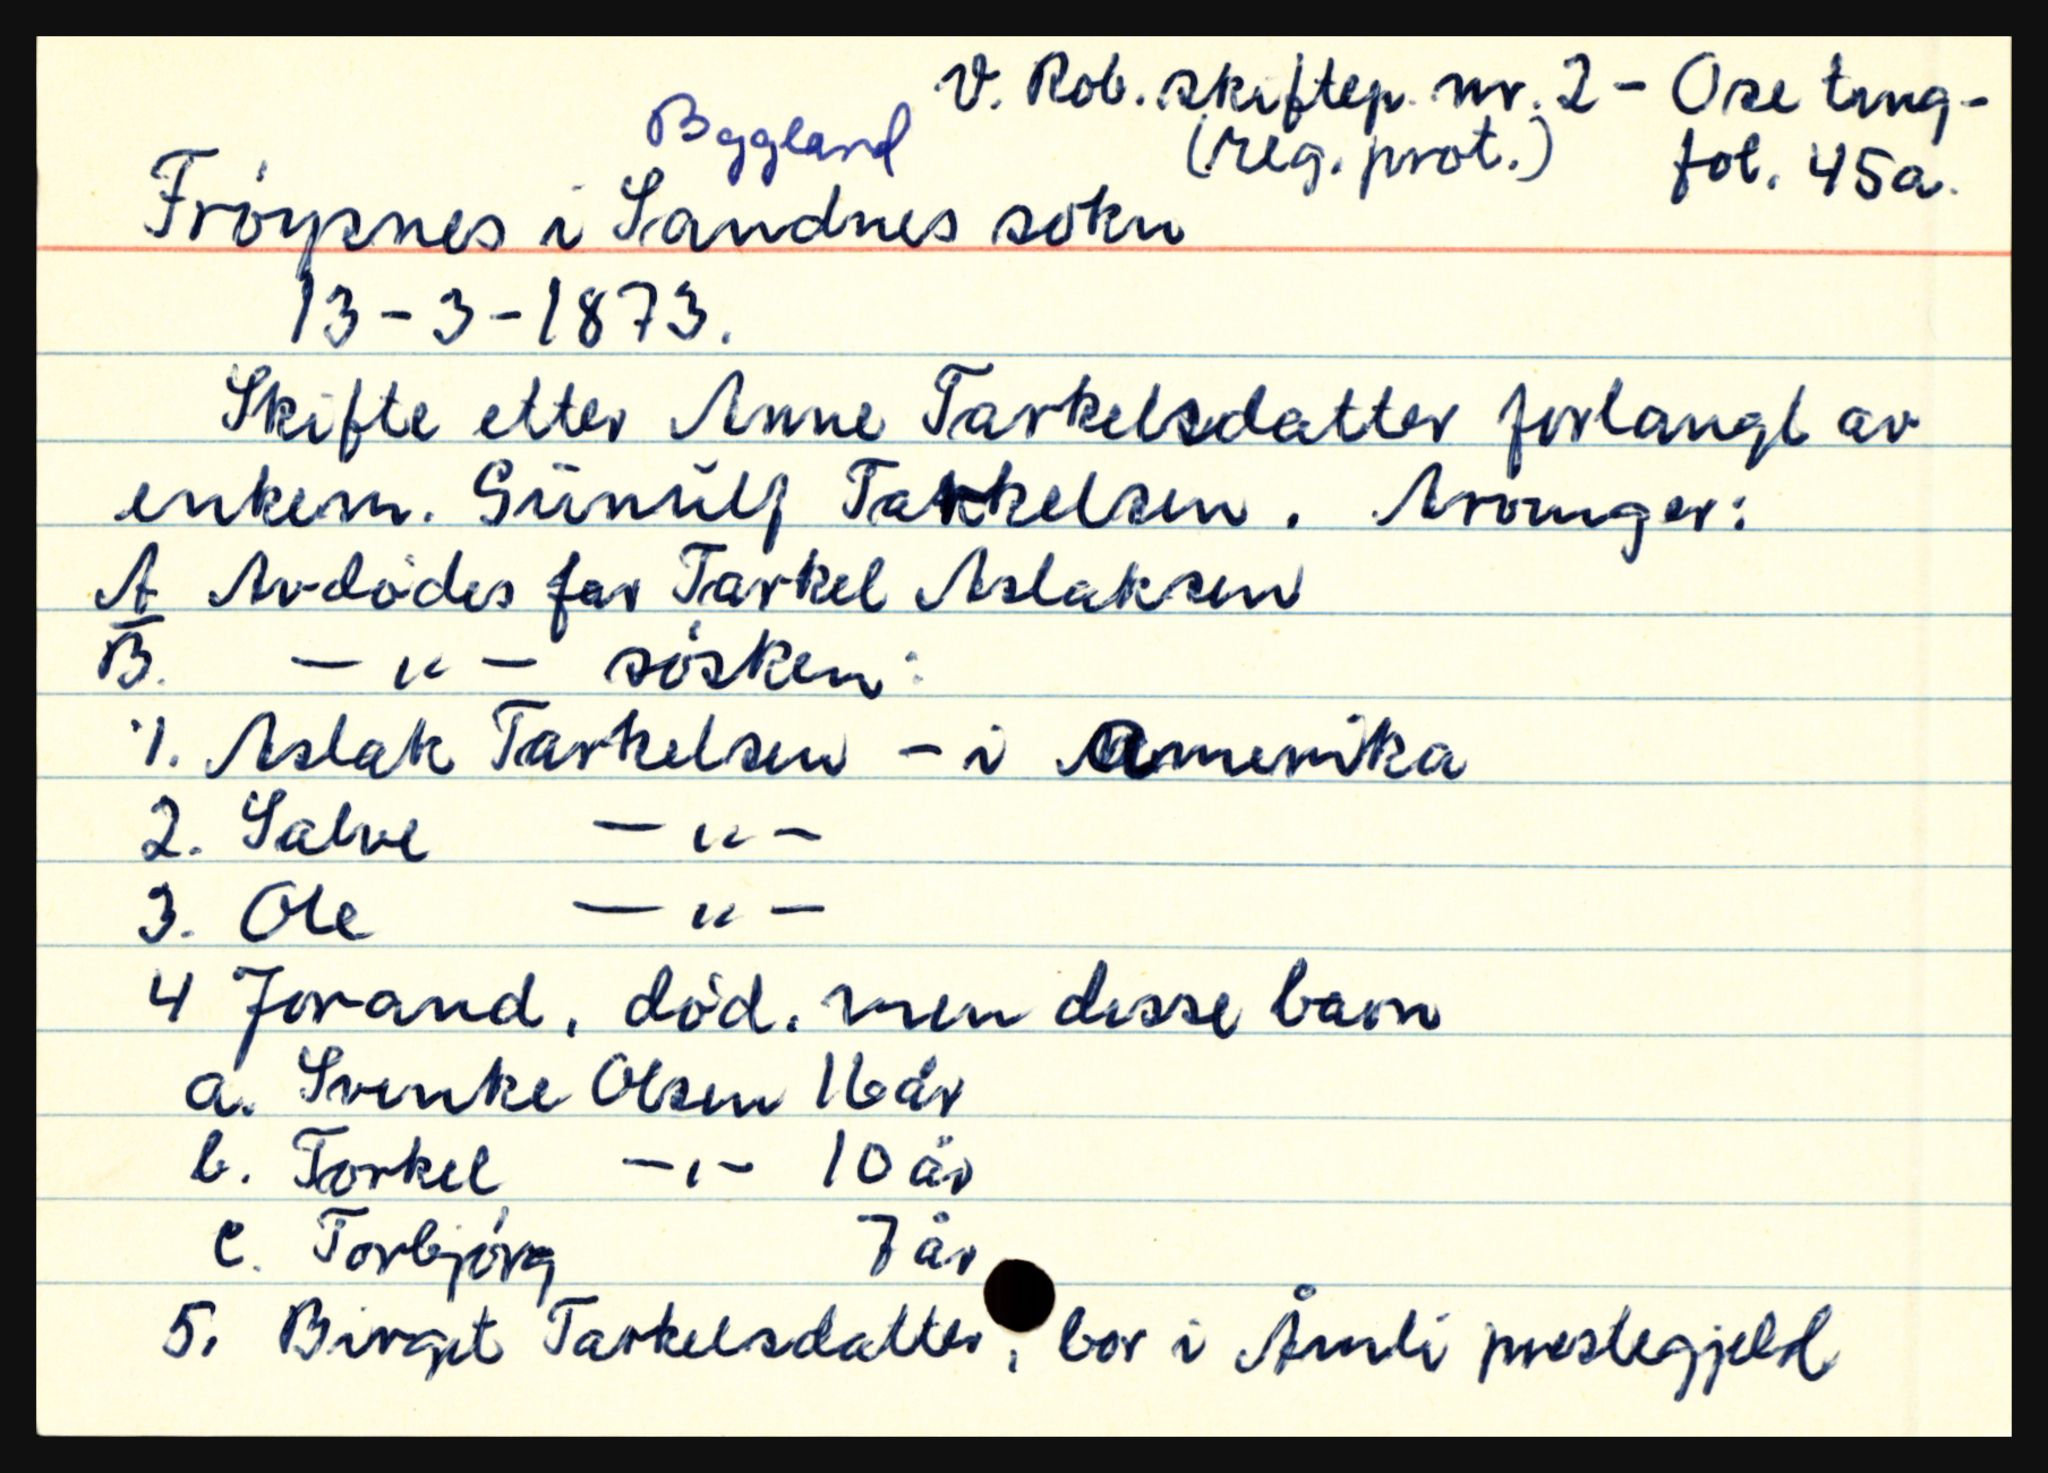 V. Rob. skiftep. nr. 2 - Ose ting-
Byggland (reg. prot.) fol. 45a.
Frøysnes i Sandnes sokn
13-3-1873.
Skifte etter Anne Tarkelsdatter forlangt av
enkem. Gunulf Tarkelsen. Arvinger:
A Avdødes far Tarkel Aslaksen
B. - " - søsken:
1. Aslak Tarkelsen - i Amerika
2. Salve - " -
3. Ole - " -
4 Jorand, død. men disse barn
a. Svenke Olsen 16 år
b. Torkel - " - 10 år
c. Torbjørg 7 år
5. Birgit Tarkelsdatter, bor i Åmli prestegjeld